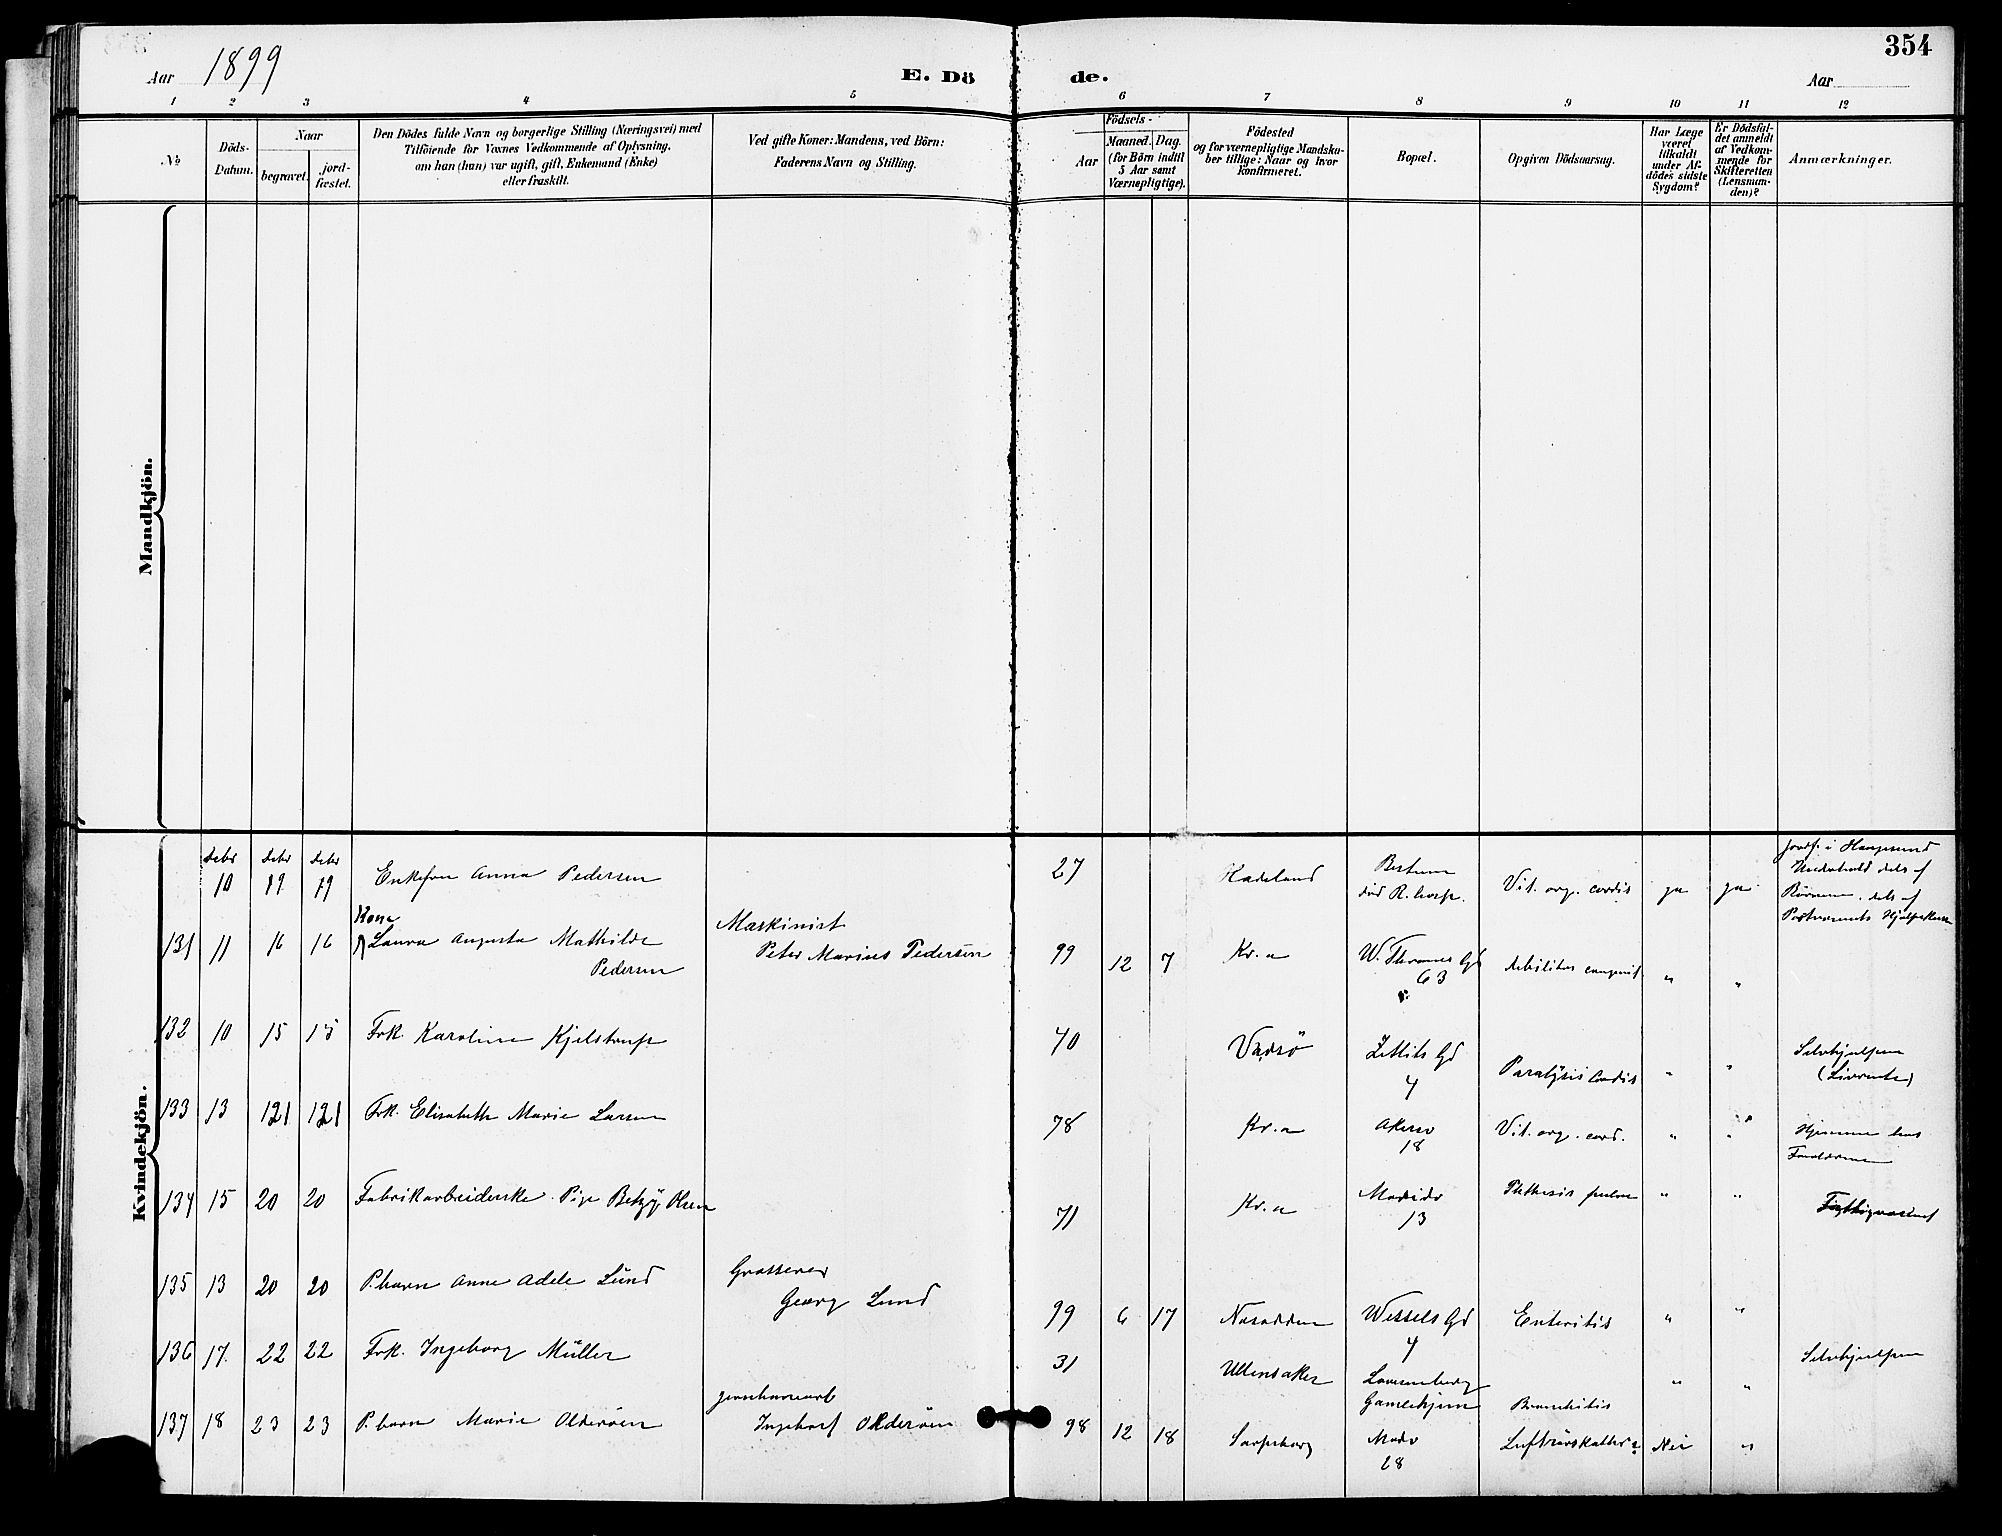 354
Aar 1899
E. Dö de.
Aar
1 2 3 4 5 6 7 8 9 10 11 12
No
Döds-
Datum.
Naar
begravet.
jord-
fæstet.
Den Dödes fulde Navn og borgerlige Stilling (Næringsvei) med
Tilföiende for Voxnes Vedkommende af Oplysning,
om han (hun) var ugift, gift, Enkemand (Enke)
eller fraskilt.
Ved gifte Koner: Mandens, ved Börn:
Faderens Navn og Stilling.
Födsels-
Aar
Maaned. Dag.
(for Börn indtil
5 Aar samt
Værnepligtige).
Födested
og for værnepligtige Mandska-
ber tillige: Naar og hvor
konfirmeret.
Bopæl.
Opgiven Dödsaarsag.
Har Læge
været
tilkaldt
under Af-
dödes sidste
Sygdom?
Er Dödsfal-
det anmeldt
af Vedkom-
mende for
Skifteretten
(Lensman-
den)?
Anmærkninger.
Mandkjön.
Kvindekjön.
Debr Debr Debr
10 19 19 Enkefru Anna Pedersen 27 Hadeland
Vit. org. cordis ja ja
dels af
dels af
Kone
131 11 16 16 Laura Augusta Mathilde
Pedersen
Maskinist
Peter Marius Pedersen
99 12 7 Kr.a
63
debilitas congenit. " "
132 10 15 15 Frk. Karoline Kjelstrup 70 Vadsö Zetlitz Gd
4
Paralysis cordis " "
Selvhjulpen
(Livrente)
133 13 21 21 Frk. Elisabeth Marie Larsen 78 Kr.a Akersv
18
Vit. org. cord. " "
Hjemme hos
Forældrene
134 15 20 20 Fabrikarbeiderske Pige Betzy Olsen 71 Kr.a
13
Phthisis pulm " "
135 13 20 20 P.barn Anne Adele Lund
Grosserer
Georg Lund
99 6 17 Nesodden Wessels Gd
4
Enteritis " "
136 17. 22 22 Frk. Ingeborg Müller 31 Ullensaker
Lovisenberg
Gamlehjem
Bronchitis " "
Selvhjulpen
137 18 23 23 P.barn Marie Olderöen
Jernbanearb
Ingebart Olderöen
98 12 18 Sarpsborg
28
Nei "